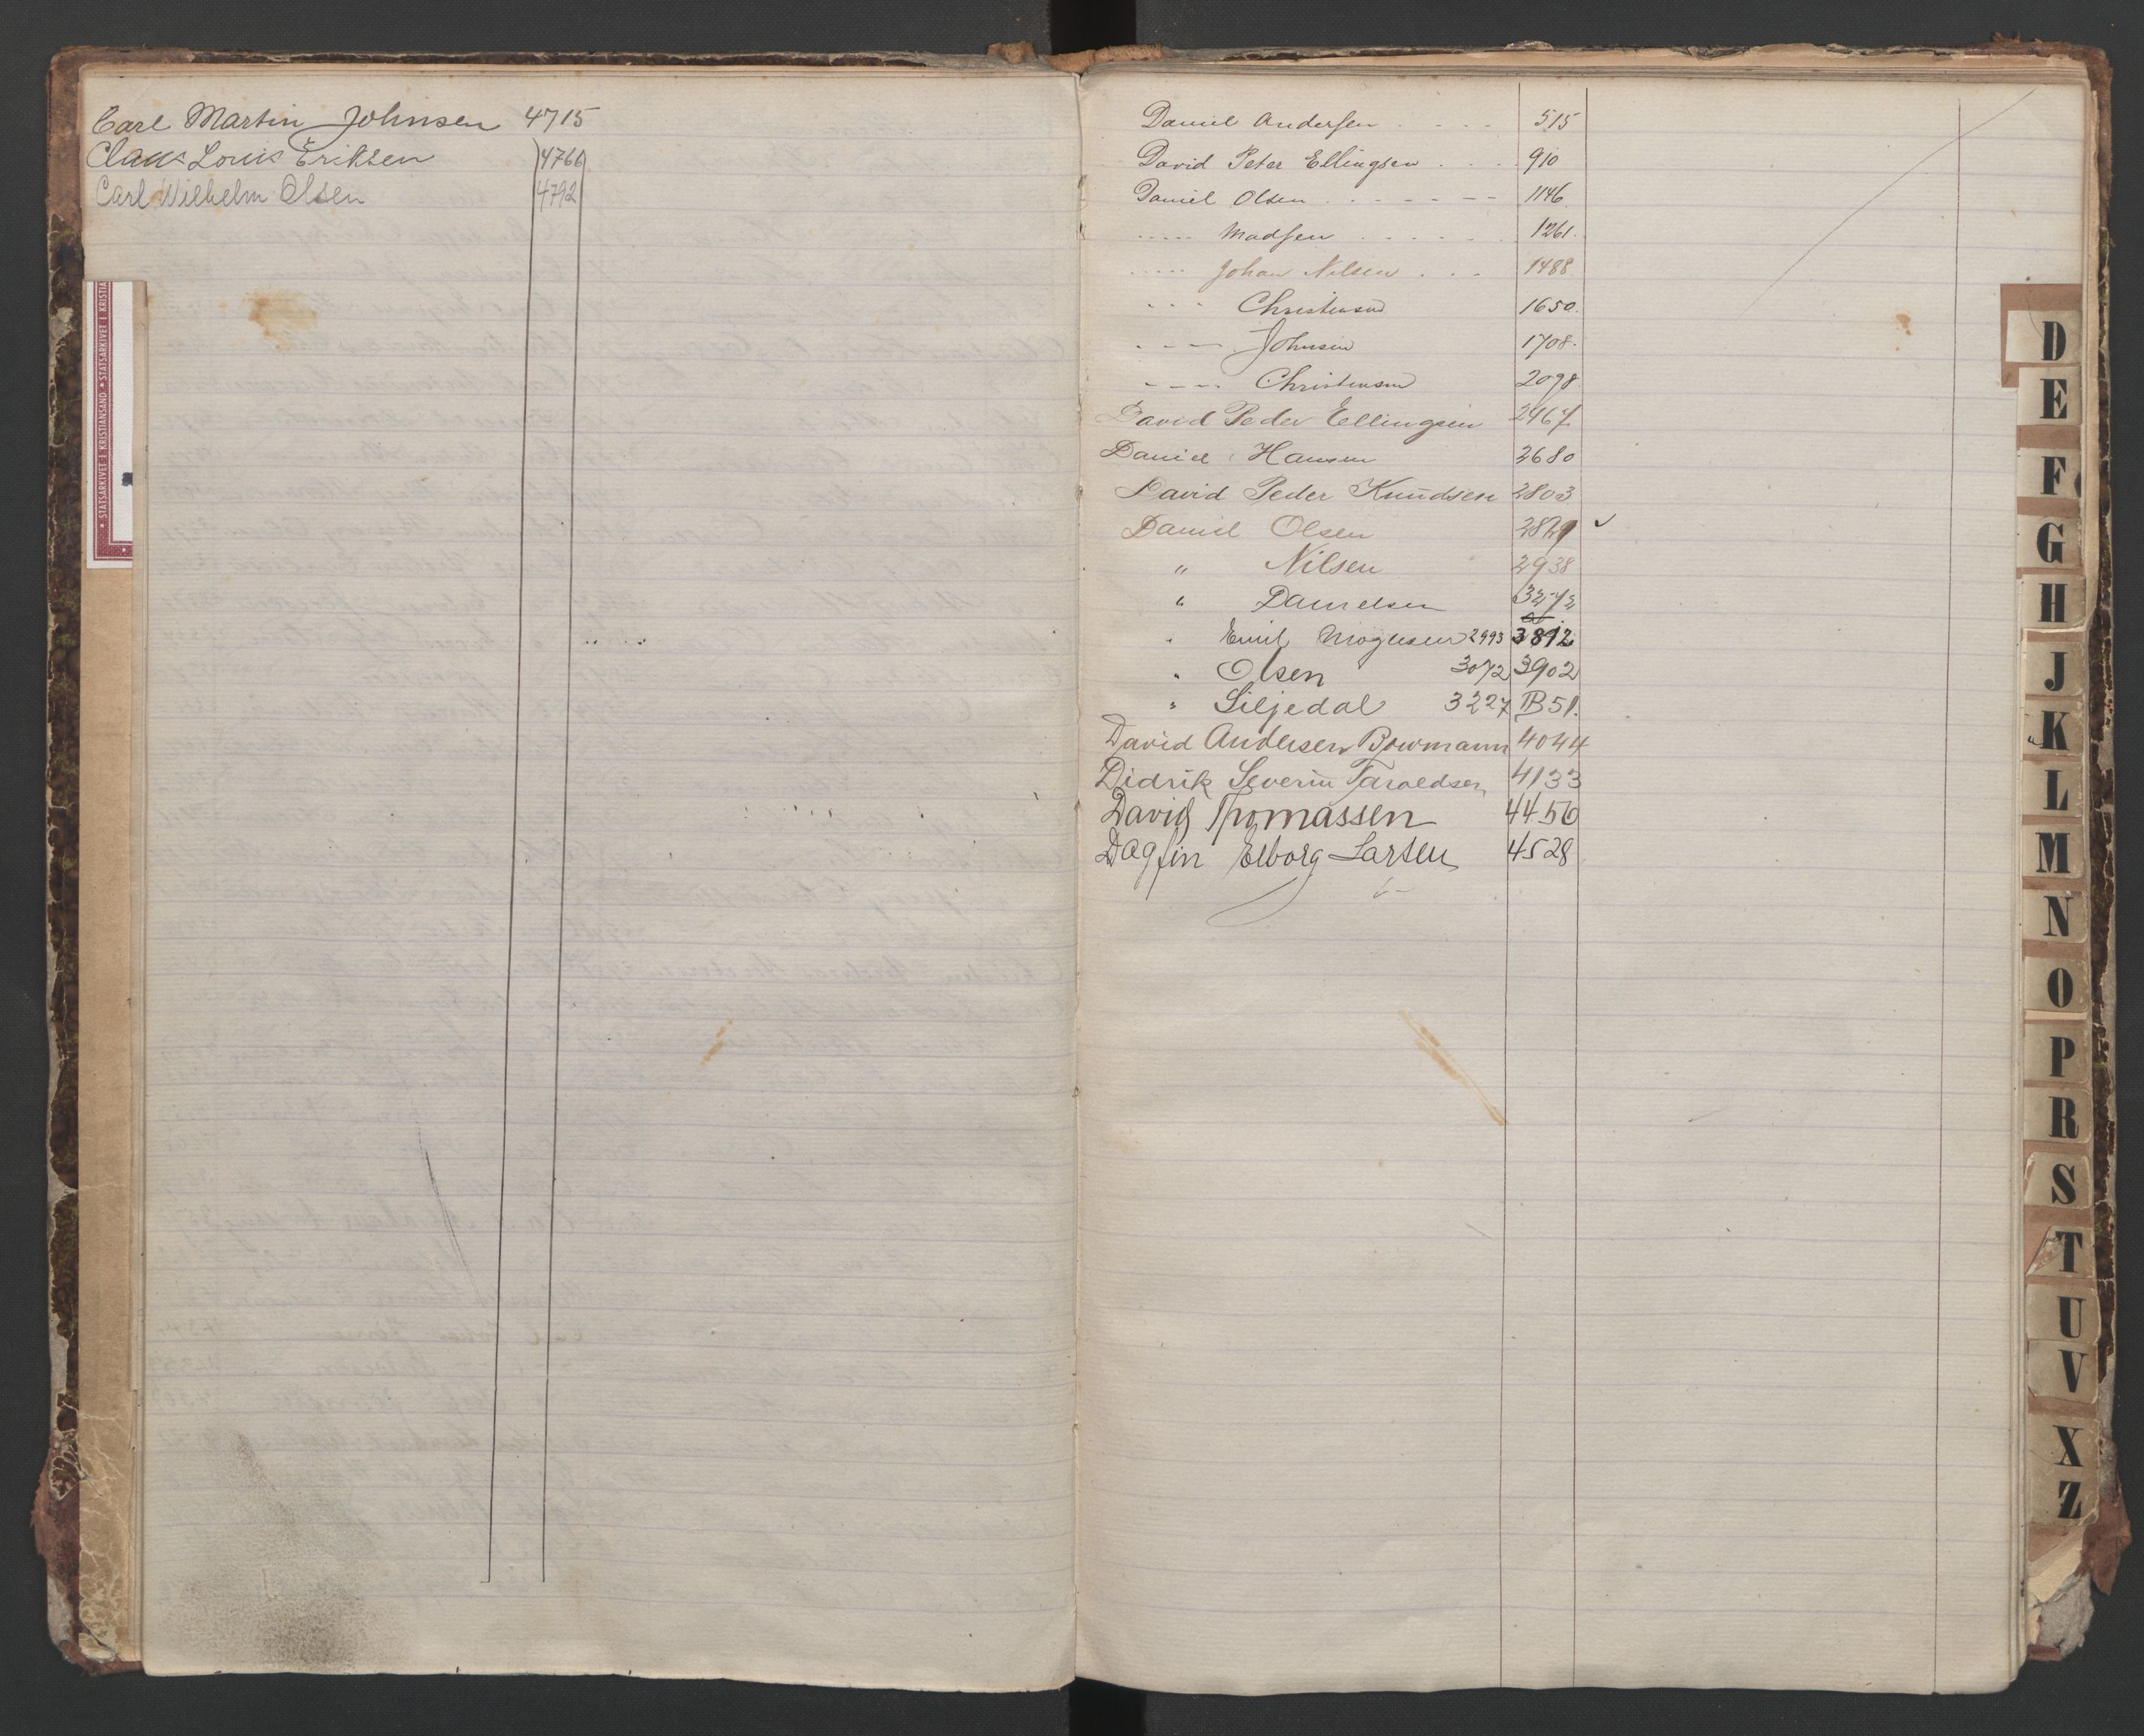 Carl Martin Johnsen 4715
Claus Louis Eriksen 4766
Carl Wilhelm Olsen 4792
STATSARKIVET I KRISTIANSAND * STATSARKIVET I KRISTIA
Daniel Andersen . - - - 515
David Peter Ellingsen . . . . 910
Daniel Olsen . - - - - - - 1146.
..... Madsen . . . . . . 1261.
..... Johan Nilsen . . . 1488
- - - Christensen 1650.
- - - - Johnsen 1708.
- - - - Christensen 2098.
David Peder Ellingsen 2467
Daniel Hansen 2680
David Peder Knudsen 2803
Daniel Olsen ✓
" Nilsen 2938
" Danielsen 3272
" Emil Mogensen 2993 3812
" Olsen 3072 3902
" Siljedal 3227 B 51.
David Andersen Bowmann 4044
Didrik Severin Taraldsen 4133
David Thomassen 4456
Dagfin Elborg Larsen 4528
D
E
F
G
H
J
K
L
M
N
O
P
R
S
T
U
V
X
Z